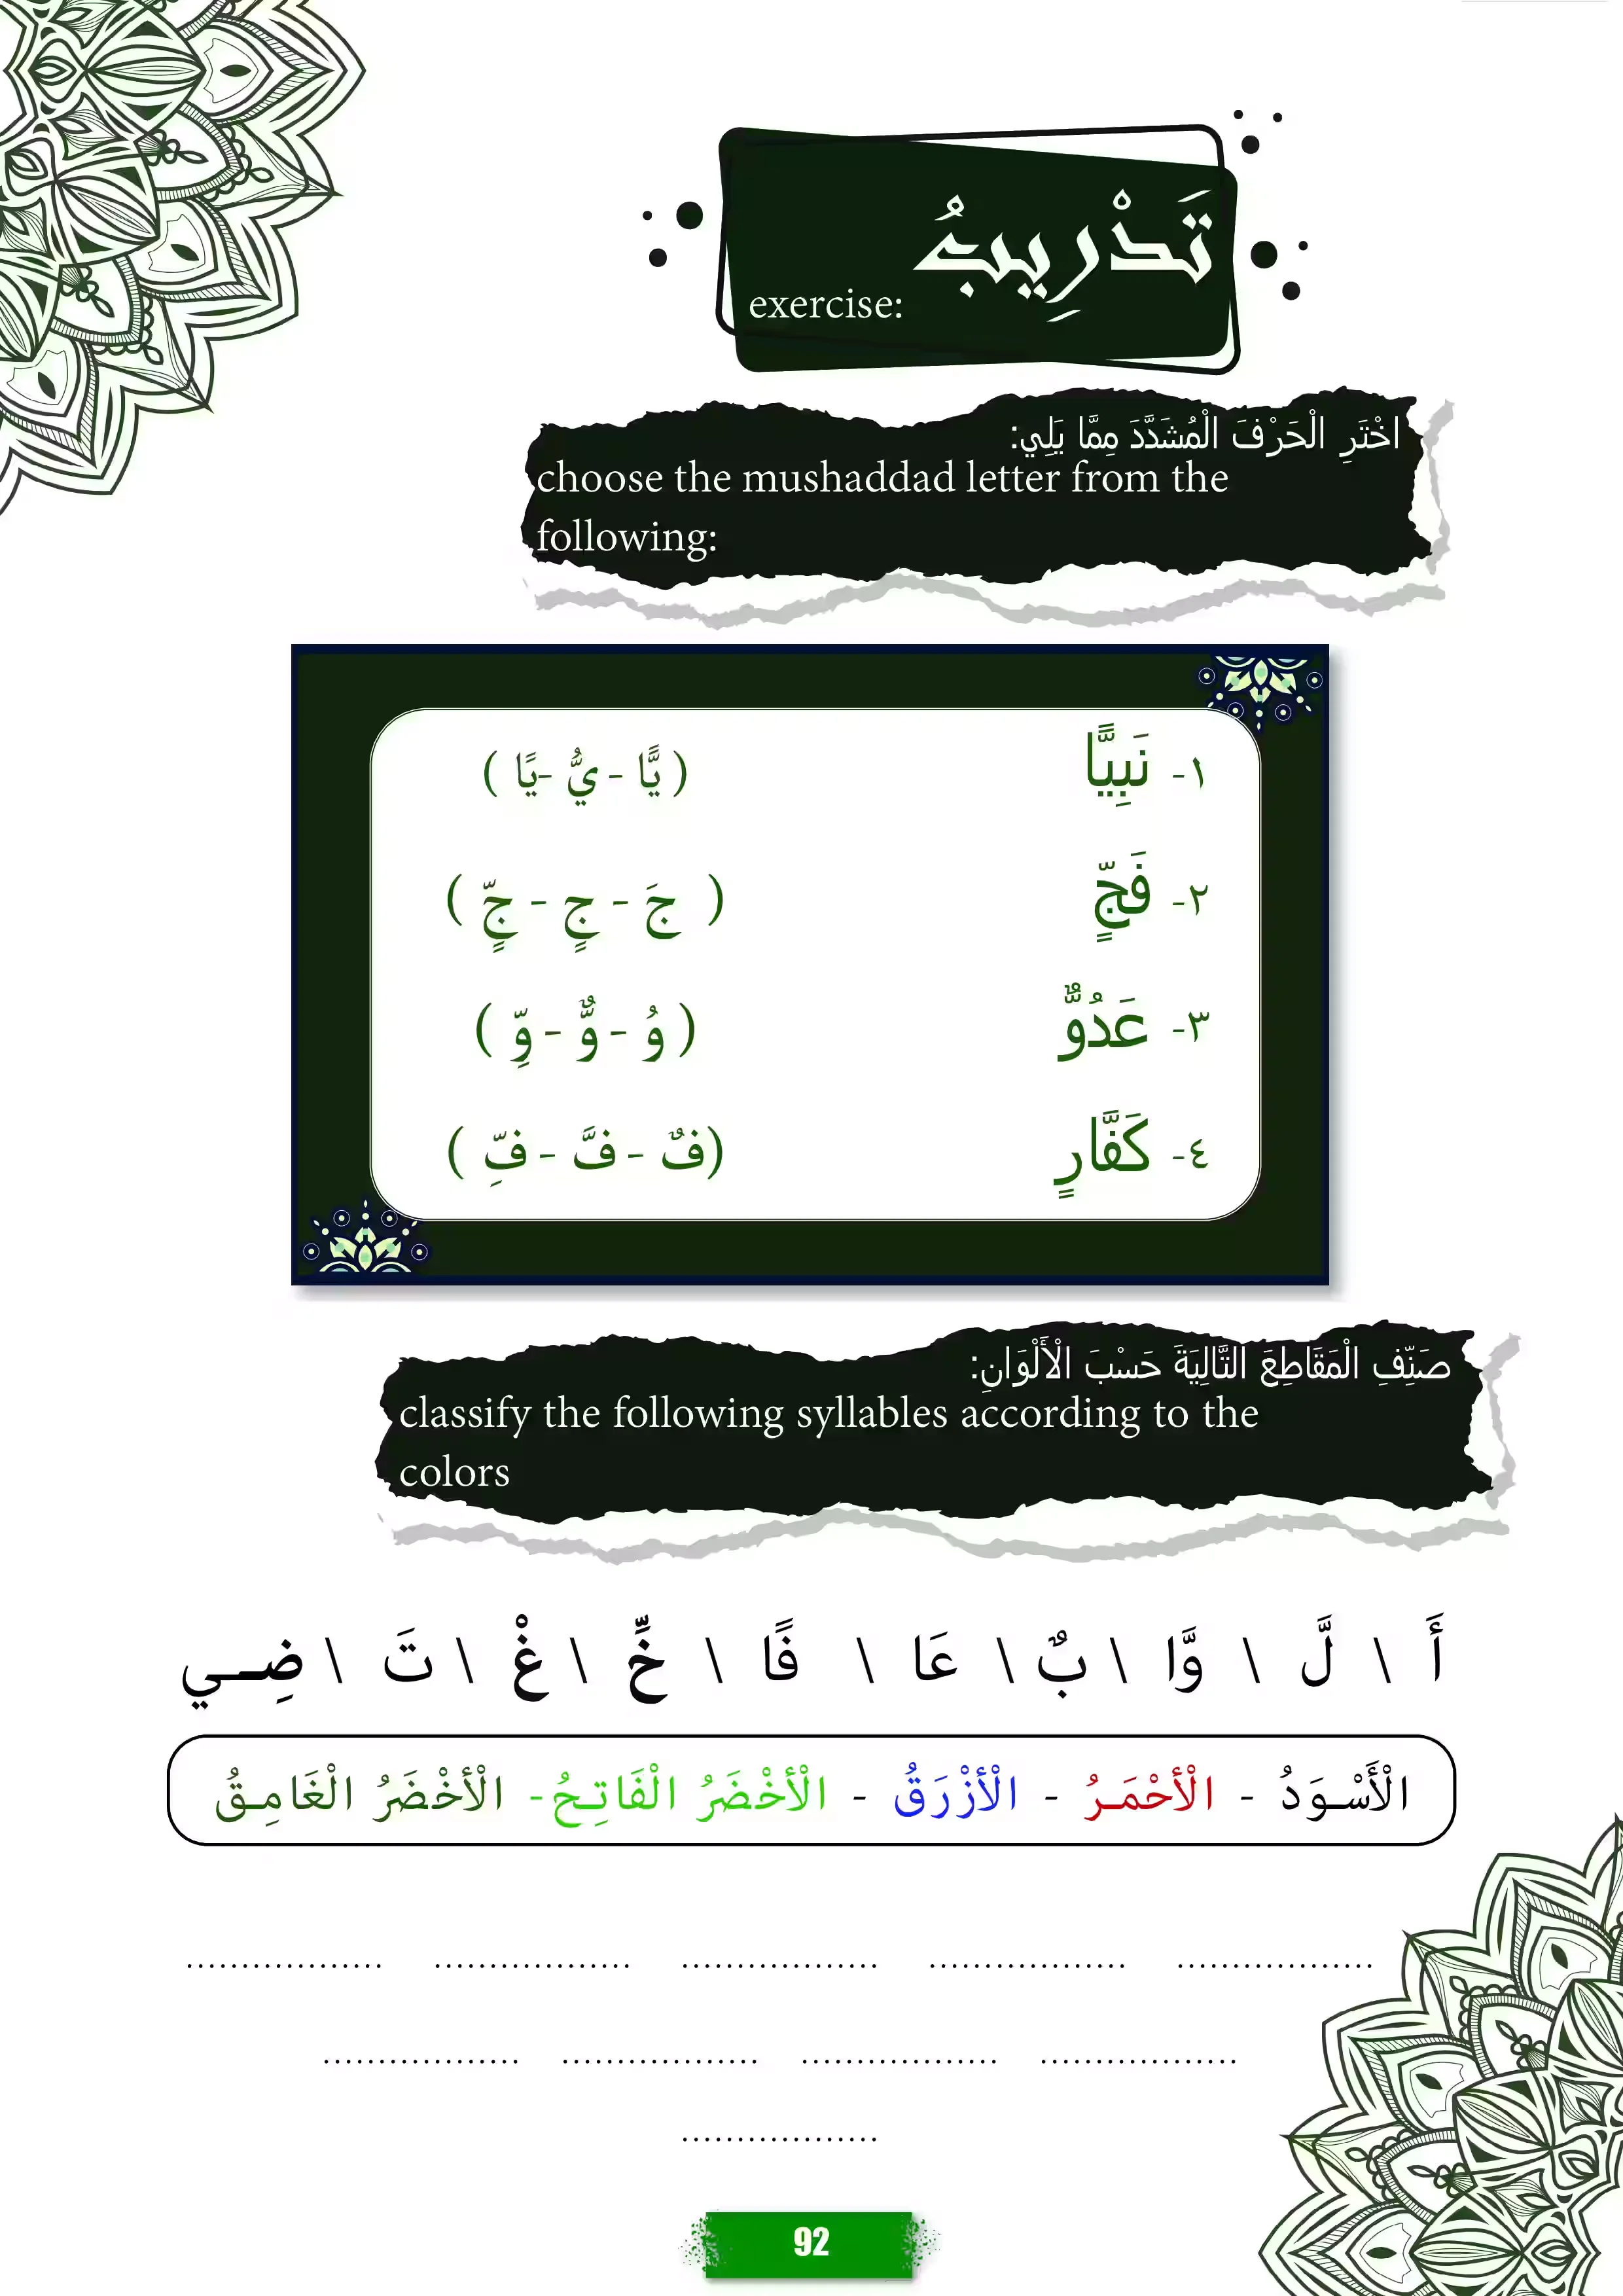 تَدْرِيبٌ
exercise:
اخْتَرِ الْحَرْفَ الْمُشَدَّدَ مِمَّا يَلِي:
choose the mushaddad letter from the
following:
١- نَبِيًّا ( يًّا - يُّ -يًا )
٢- فَجٍّ ( جَ - جٍ - جٍّ )
٣- عَدُوٌّ ( وُ - وٌّ - وِّ )
٤- كَفَّارٍ (فٌ - فَّ - فِّ )
صَنِّفِ الْمَقَاطِعَ التَّالِيَةَ حَسْبَ الْأَلْوَانِ:
classify the following syllables according to the
colors
أَ \ لَّ \ وَّا \ بٌ \ عَا \ فًا \ خٍّ \ غْ \ تَ \ ضِـي
الْأَسْـوَدُ - الْأَحْمَـرُ - الْأَزْرَقُ - الْأَخْضَرُ الْفَاتِـحُ - الْأَخْضَرُ الْغَامِـقُ
.................. .................. .................. .................. ..................
.................. .................. .................. ..................
..................
92